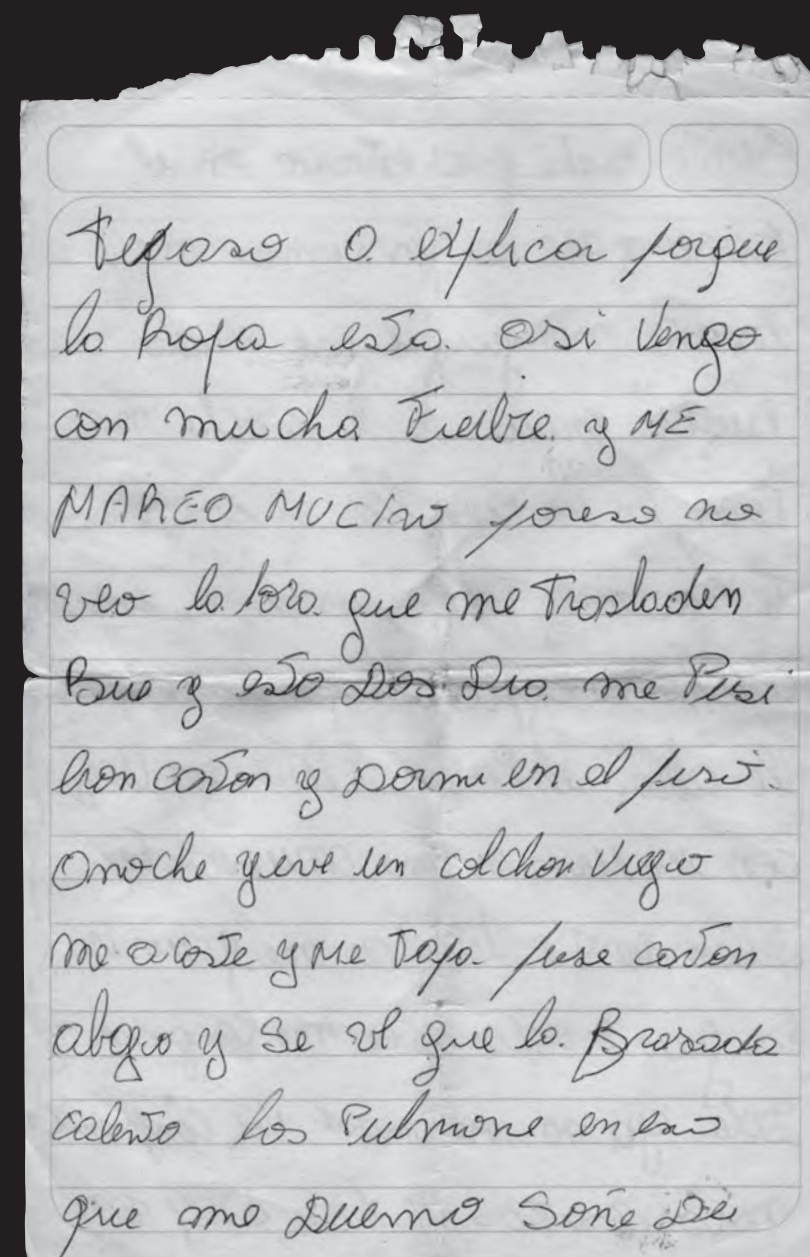 Tepaso a explicar porque
la Ropa esta asi Vengo
con mucha Fiebre y ME
MAREO MUCho poreso no
veo la hora que me Trasladen
Bue y esto Dos Dia me Pusi
eron carton y Dormi en el piso.
anoche yeve un colchon viejo
me acoste y Me Tapa puse carton
abajo y Se ve que la Brasada
calento los Pulmone en eso
que me Duermo Soñe De